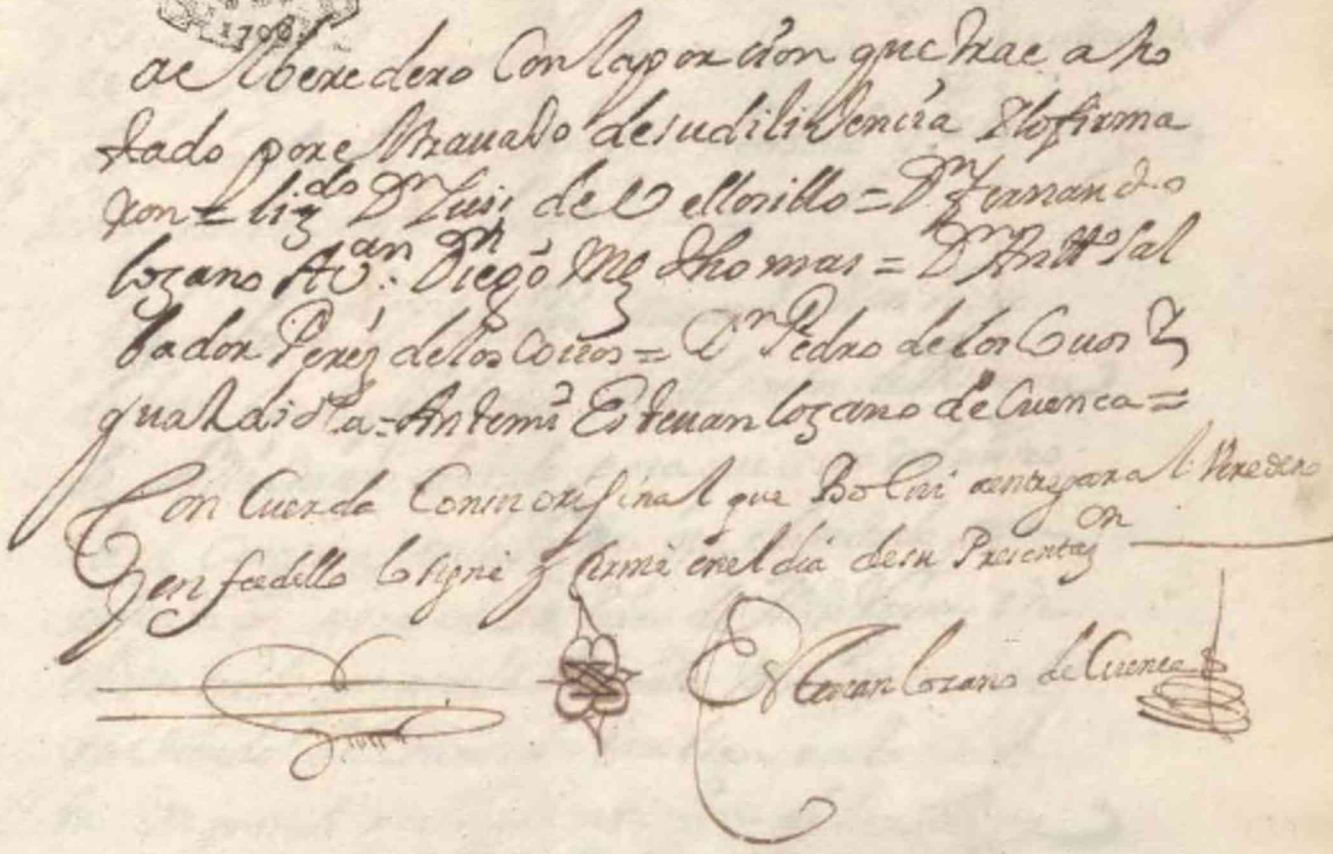 1700
ael beredero Con la porcion que trae a no
tado por el travaJo de su diliJencia Y lo firma
ron = lizdo Dn Luis de Vellosillo = Dn Fernando
lozano Dn Diego Mz thomas = Dn Antto Sal
bador Perez de los Covos = Dn Pedro de los Covos Y
guardiola = Ante mi Estevan lozano de Cuenca =
Con Cuerda Con su orijinal que Bolvi a entregar al Veredero
Y en fee dello lo signe y firme en el dia de su Presentazon
Estevan lozano de Cuenca